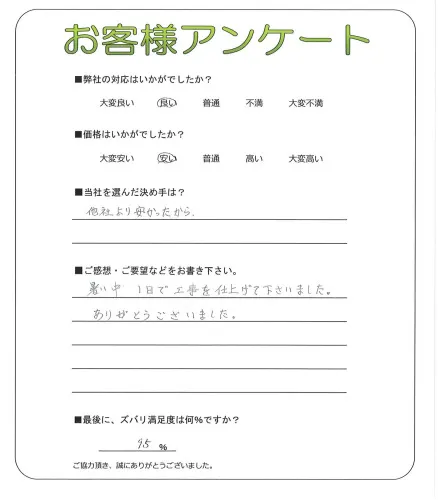 お客様アンケート
■弊社の対応はいかがでしたか？
大変良い　良い　普通　不満　大変不満
■価格はいかがでしたか？
大変安い　安い　普通　高い　大変高い
■当社を選んだ決め手は？
他社より安かったから.
■ご感想・ご要望などをお書き下さい。
暑い中　1日で工事を仕上げて下さいました。
ありがとうございました。
■最後に、ズバリ満足度は何%ですか？
95 %
ご協力頂き、誠にありがとうございました。